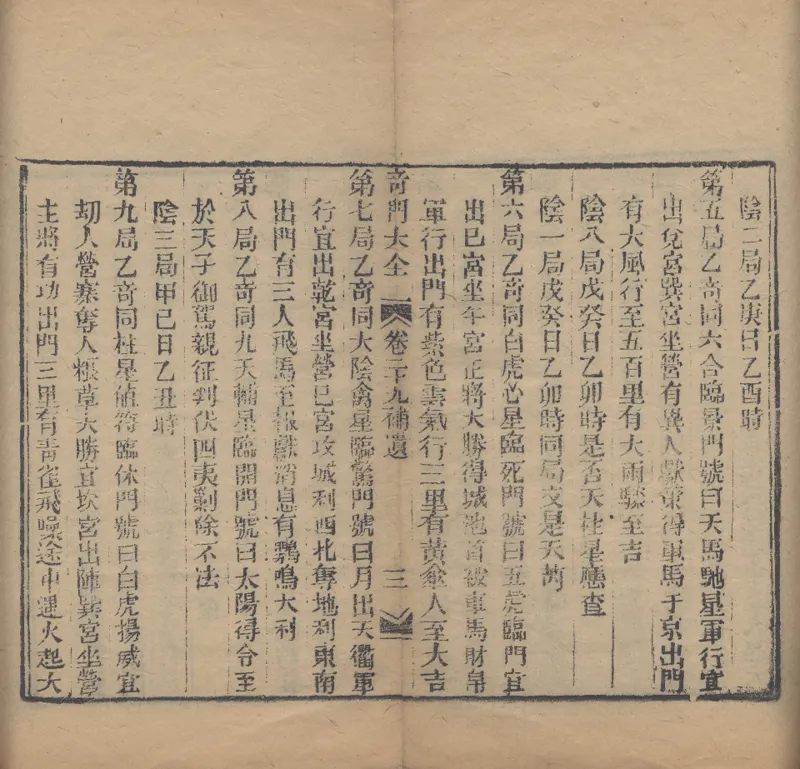 陰二局乙庚日乙酉時
第五局乙奇同六合臨景門號曰天馬馳星軍行宜
出兌宮巽宮坐營有異人獻策得軍馬于京出門
有大風行至五百里有大雨驟至吉
陰八局戊癸日乙卯時是否天柱星應查
陰一局戊癸日乙卯時同局交是天芮
第六局乙奇同白虎心星臨死門號曰五虎臨門宜
出巳宮坐午宮正將大勝得城池首被車馬財帛
軍行出門有紫色雲氣行三里有黃傘人至大吉
奇門大全 卷二十九補遺 三
第七局乙奇同太陰禽星臨驚門號曰月出天衢軍
行宜出乾宮坐營巳宮攻城利西北奪地利東南
出門有三人飛馬至報獻消息有鵶鳴大利
第八局乙奇同九天輔星臨開門號曰太陽得令至
於天子御駕親征判伏四夷剿除不法
陰三局甲巳日乙丑時
第九局乙奇同柱星值符臨休門號曰白虎揚威宜
劫人營寨奪人粮草大勝宜坎宮出陣巽宮坐營
主將有功出門三里有青雀飛噪途中遇火起大